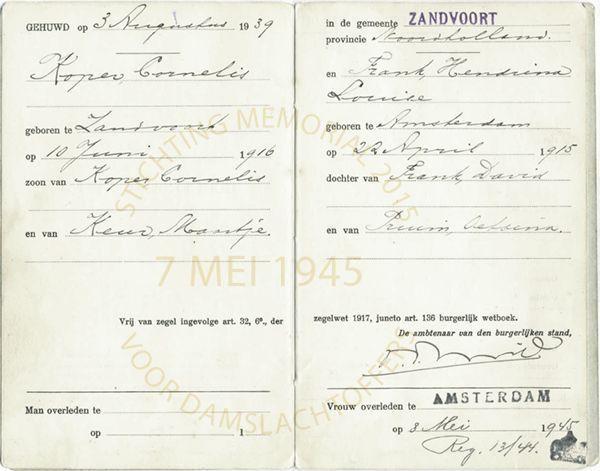 GEHUWD op 3 Augustus 1939
Koper, Cornelis
geboren te Zandvoort
op 10 Juni 1916
zoon van Koper Cornelis
en van Keur, Maartje.
Vrij van zegel ingevolge art. 32, 6º., der
Man overleden te
op 1
in de gemeente ZANDVOORT
provincie Noordholland.
en Frank, Hendrina
Louise
geboren te Amsterdam
op 22 April 1915
dochter van Frank, David
en van Pruim,
zegelwet 1917, juncto art. 136 burgerlijk wetboek.
De ambtenaar van den burgerlijken stand,
Vrouw overleden te AMSTERDAM
op 3 Mei 1945
Reg. 13/44.
STICHTING MEMORIAL 2015
7 MEI 1945
VOOR DAMSLACHTOFFERS